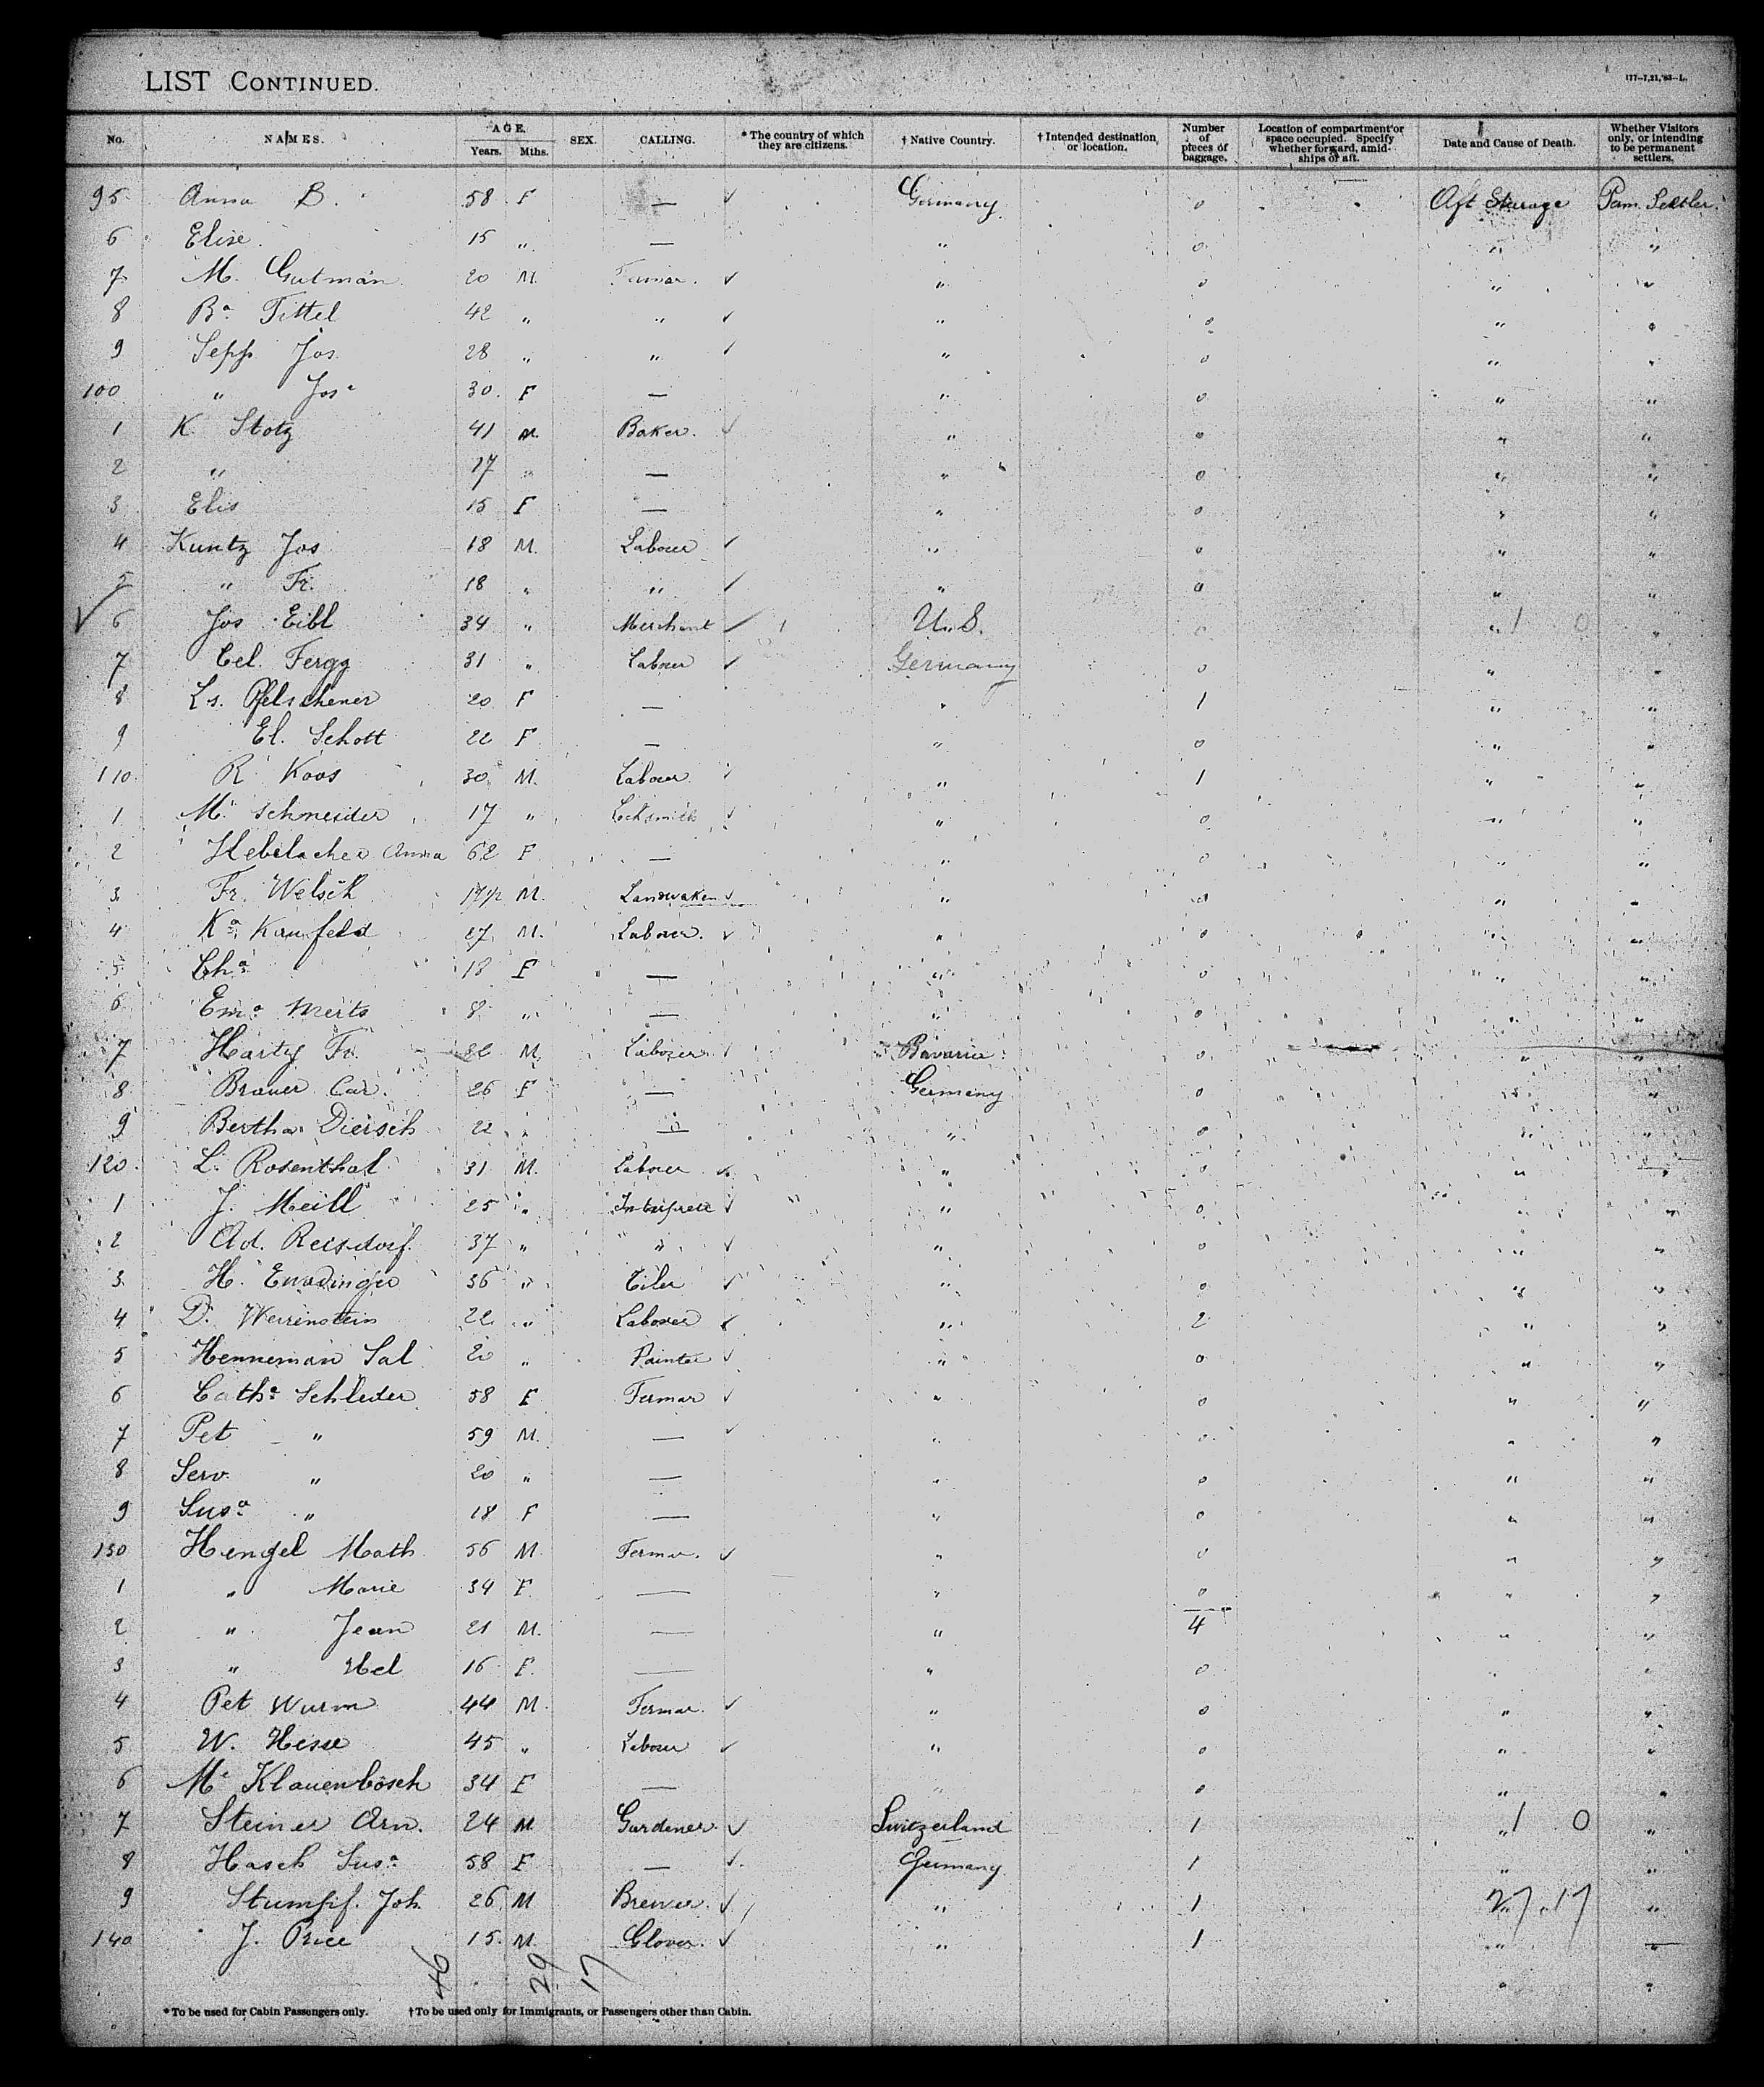 LIST CONTINUED.
177-7,21,'83-L.
No. NAMES. AGE. Years. Mths. SEX. CALLING. * The country of which they are citizens. † Native Country. † Intended destination or location. Number of pieces of baggage. Location of compartment or space occupied. Specify whether forward, amidships or aft. Date and Cause of Death. Whether Visitors only, or intending to be permanent settlers.
95 Anna B. 58 F — ✓ Germany 0 Aft Sturage Pam. Settler.
6 Elise 15 " — " 0 " "
7 M. Gutman 20 M. ✓ " 0 " "
8 Ba Tittel 42 " " ✓ " 0 " "
9 Sepp Jos. 28 " " ✓ " 0 " "
100 " Josa 30 F — " 0 " "
1 K. Stotz 41 M. Baker. ✓ " 0 " "
2 " 17 " — " 0 " "
3 Elis 15 F — " 0 " "
4 Kuntz Jos 18 M. Labouer ✓ " 0 " "
5 " Fr. 18 " " ✓ " 0 " "
✓ 6 Jos Eibl 34 " Merchant ✓ U.S. 0 " 1 0 "
7 Cel. Fergg 31 " Labouer ✓ Germany 0 " "
8 Ls. Pfelschener 20 F — " 1 " "
9 El. Schott 22 F — " 0 " "
110 R Koos 30 M. Labouer ✓ " 1 " "
1 M. Schneider 17 " Locksmith ✓ " 0 " "
2 Anna 62 F — " 0 " "
3 Fr. Welsch 17 1/2 M. ✓ " 0 " "
4 Ka Kaufeld 27 M. Labouer. ✓ " 0 " "
5 Cha 18 F — " 0 " "
6 Ema Merts 8 " — " 0 " "
7 Hartz Fr. M. Labouer ✓ Bavaria 0 " "
8 Brauer Car. 26 F — Germany 0 " "
9 Bertha Diersch 22 " — " 0 " "
120 L. Rosenthal 31 M. Labouer ✓ " 0 " "
1 J. Meill 25 " Interprete ✓ " 0 " "
2 Ad. Reisdorf 37 " " ✓ " 0 " "
3 H. 36 " Tiler ✓ " 0 " "
4 D. Werrinstein 22 " Labouer ✓ " 2 " "
5 Henneman Sal 20 " Painter ✓ " 0 " "
6 Catha Schleder 58 F Fermar ✓ " 0 " "
7 Pet " 59 M. — ✓ " 0 " "
8 Serv. " 20 " — " 0 " "
9 Susa " 18 F — " 0 " "
130 Hengel Math 56 M Fermar. ✓ " 0 " "
1 " Marie 34 F — " 0 " "
2 " Jean 21 M. — " 4 " "
3 " Hel 16 F. — " 0 " "
4 Pet Wurm 44 M Fermar. ✓ " 0 " "
5 W. Hesse 45 " Labouer ✓ " 0 " "
6 Ma Klauenbösch 34 F — " 0 " "
7 Steiner Arn. 24 M Gardener. ✓ Switzerland 1 " 1 0 "
8 Hasch Susa 58 F — ✓ Germany 1 " "
9 Stumpf. Joh. 26 M Brewer. ✓ " 1 27 17 "
140 J. Price 15 M. Glover. ✓ " 1 " "
46 29 17
* To be used for Cabin Passengers only. † To be used only for Immigrants, or Passengers other than Cabin.